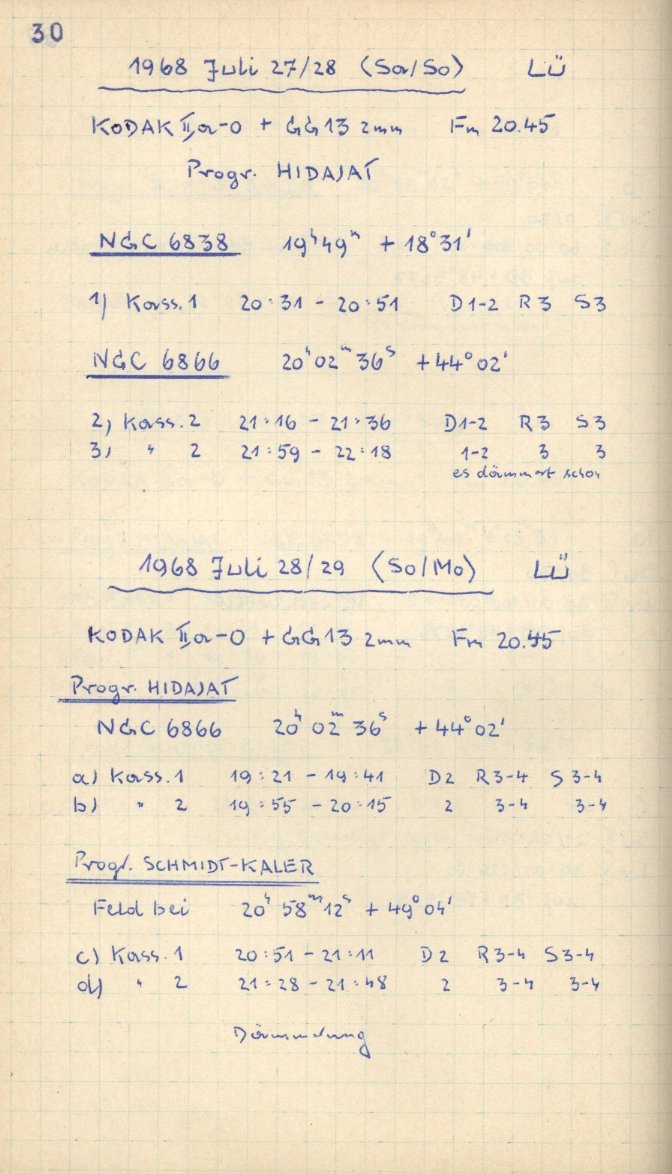 30
1968 Juli 27/28 (Sa/So) LÜ
KODAK IIa-O + GG13 2mm Fm 20.45
Progr. HIDAJAT
NGC 6838 19ʰ49ᵐ + 18°31'
1) Kass. 1 20:31 - 20:51 D1-2 R3 S3
NGC 6866 20ʰ02ᵐ36ˢ +44°02'
2) Kass. 2 21:16 - 21:36 D1-2 R3 S3
3) " 2 21:59 - 22:18 1-2 3 3
es dämmert schon
1968 Juli 28/29 (So/Mo) LÜ
KODAK IIa-O + GG13 2mm Fm 20.45
Progr. HIDAJAT
NGC 6866 20ʰ02ᵐ36ˢ +44°02'
a) Kass. 1 19:21 - 19:41 D2 R3-4 S3-4
b) " 2 19:55 - 20:15 2 3-4 3-4
Progr. SCHMIDT-KALER
Feld bei 20ʰ58ᵐ12ˢ +49°04'
c) Kass. 1 20:51 - 21:11 D2 R3-4 S3-4
d) " 2 21:28 - 21:48 2 3-4 3-4
Dämmerung